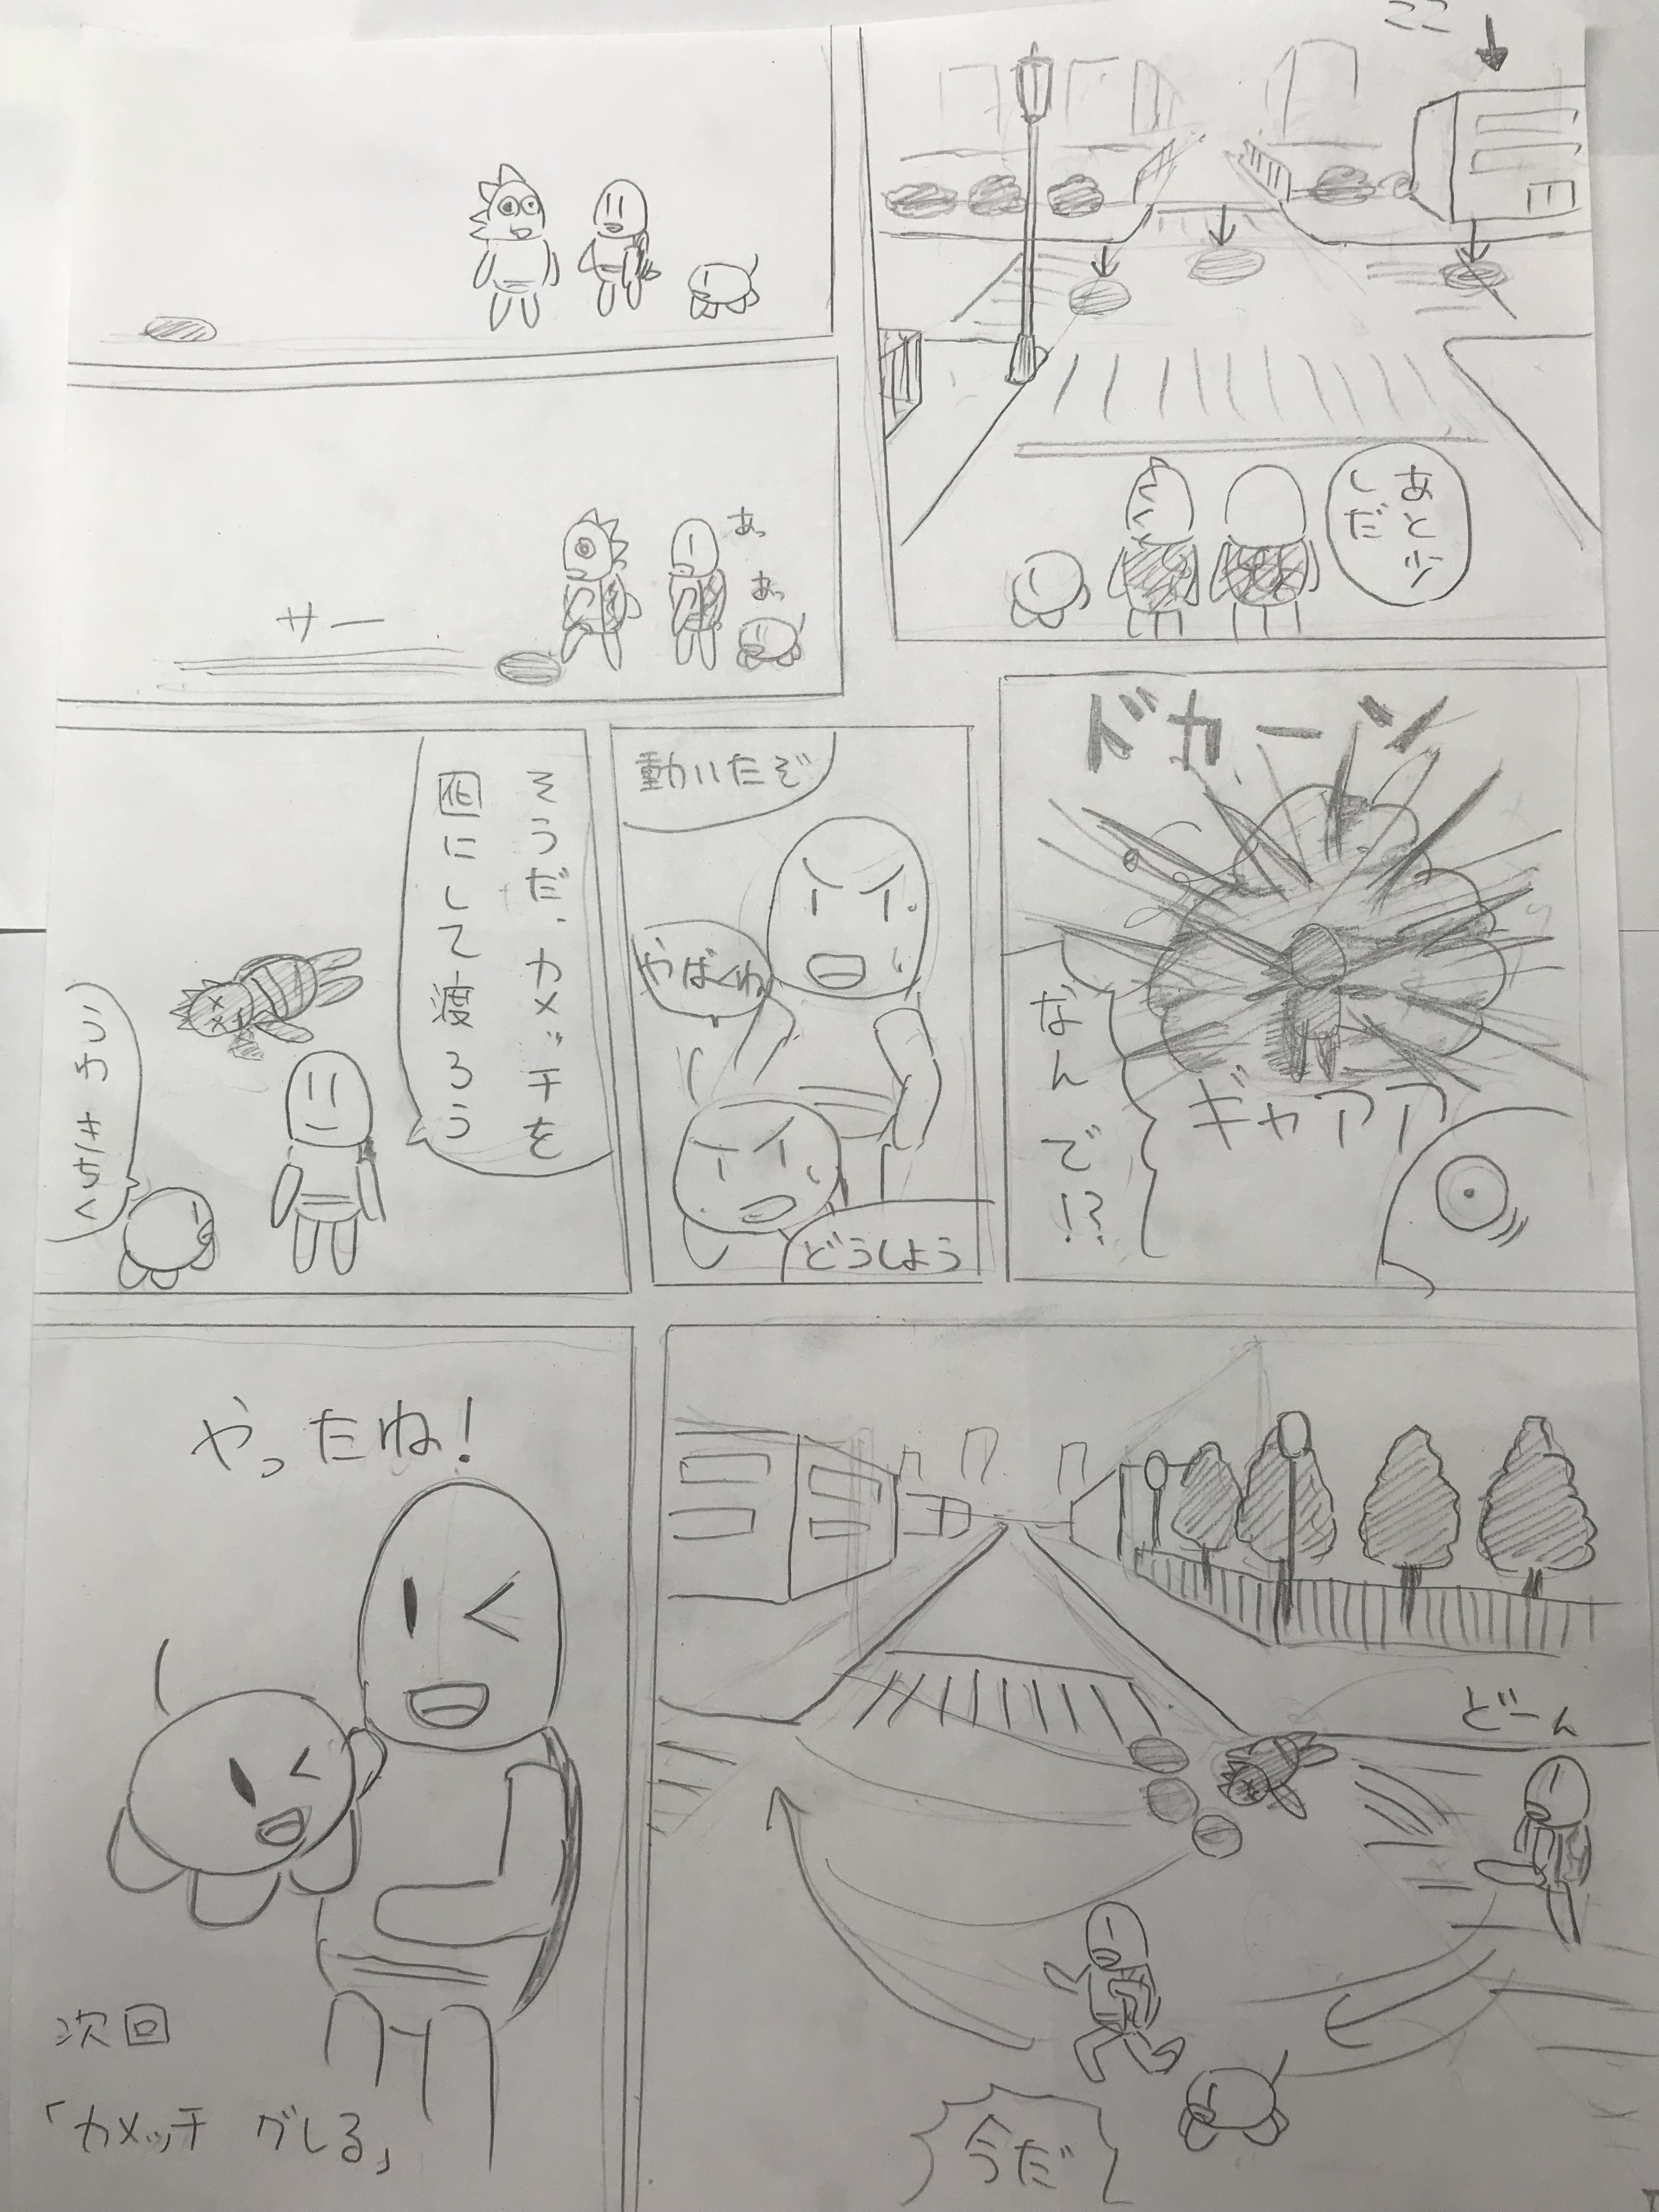 ここ
あと少
しだ
あっ
あっ
サー
ドカーン
ギャアア
なんで!?
動いたぞ
やばくね
どうしよう
そうだ、カメッチを
囮にして渡ろう
どーん
今だ
やったね!
次回
「カメッチ グレる」